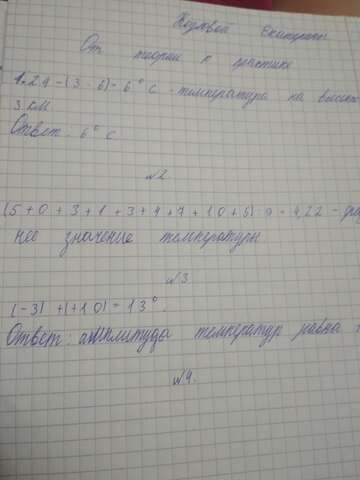 Козловой Екатерины
От теории к практике
1. 24 - (3 · 6) = 6° С - температура на высоте
3 км
Ответ: 6° С
№2.
(5 + 0 + 3 + 1 + 3 + 4 + 7 + 10 + 5) : 9 = 4,22 - сред
нее значение температуры
№3
(-3) + (+10) = 13°.
Ответ: амплитуда температур равна
№4.